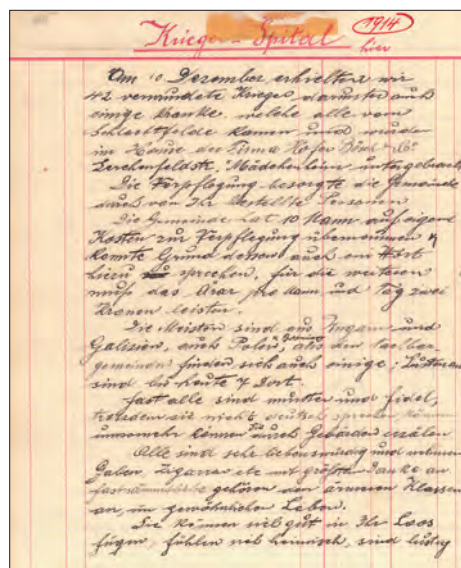 Krieger-Spital 1914
hier
Am 10 Dezember erhielten wir
42 verwundete Krieger darunter auch
einige Kranke, welche alle vom
Schlachtfelde kamen und wurden
im Hause der Firma Hofer Bösch &
Lerchenfeldstr. Mädchenheim untergebracht
Die Verpflegung besorgte die Gemeinde
durch von Ihr bestellte Personen
Die Gemeinde hat 10 Mann auf eigene
Kosten zur Verpflegung übernommen &
konnte Grund dessen auch ein Wort
hiezu sprechen, für die weiteren
muß das Ärar pro Mann und Tag zwei
Kronen leisten.
Die Meisten sind aus Ungarn und
Galizien, auch Polen, aus den
gemeinden finden sich auch einige;
sind bis heute 7 dort.
Fast alle sind munter und fidel,
trotzdem sie nicht deutsch sprechen können
umsomehr können Sie durch Gebärden erzälen
Alle sind sehr liebenswürdig und nehmen
Gaben, Zigarren etc mit größtem Danke an
fast sämmtliche gehören der ärmeren Klasse
an, im gewöhnlichen Leben.
Sie können sich gut in Ihr Loos
fügen, fühlen sich heimisch, sind lustig